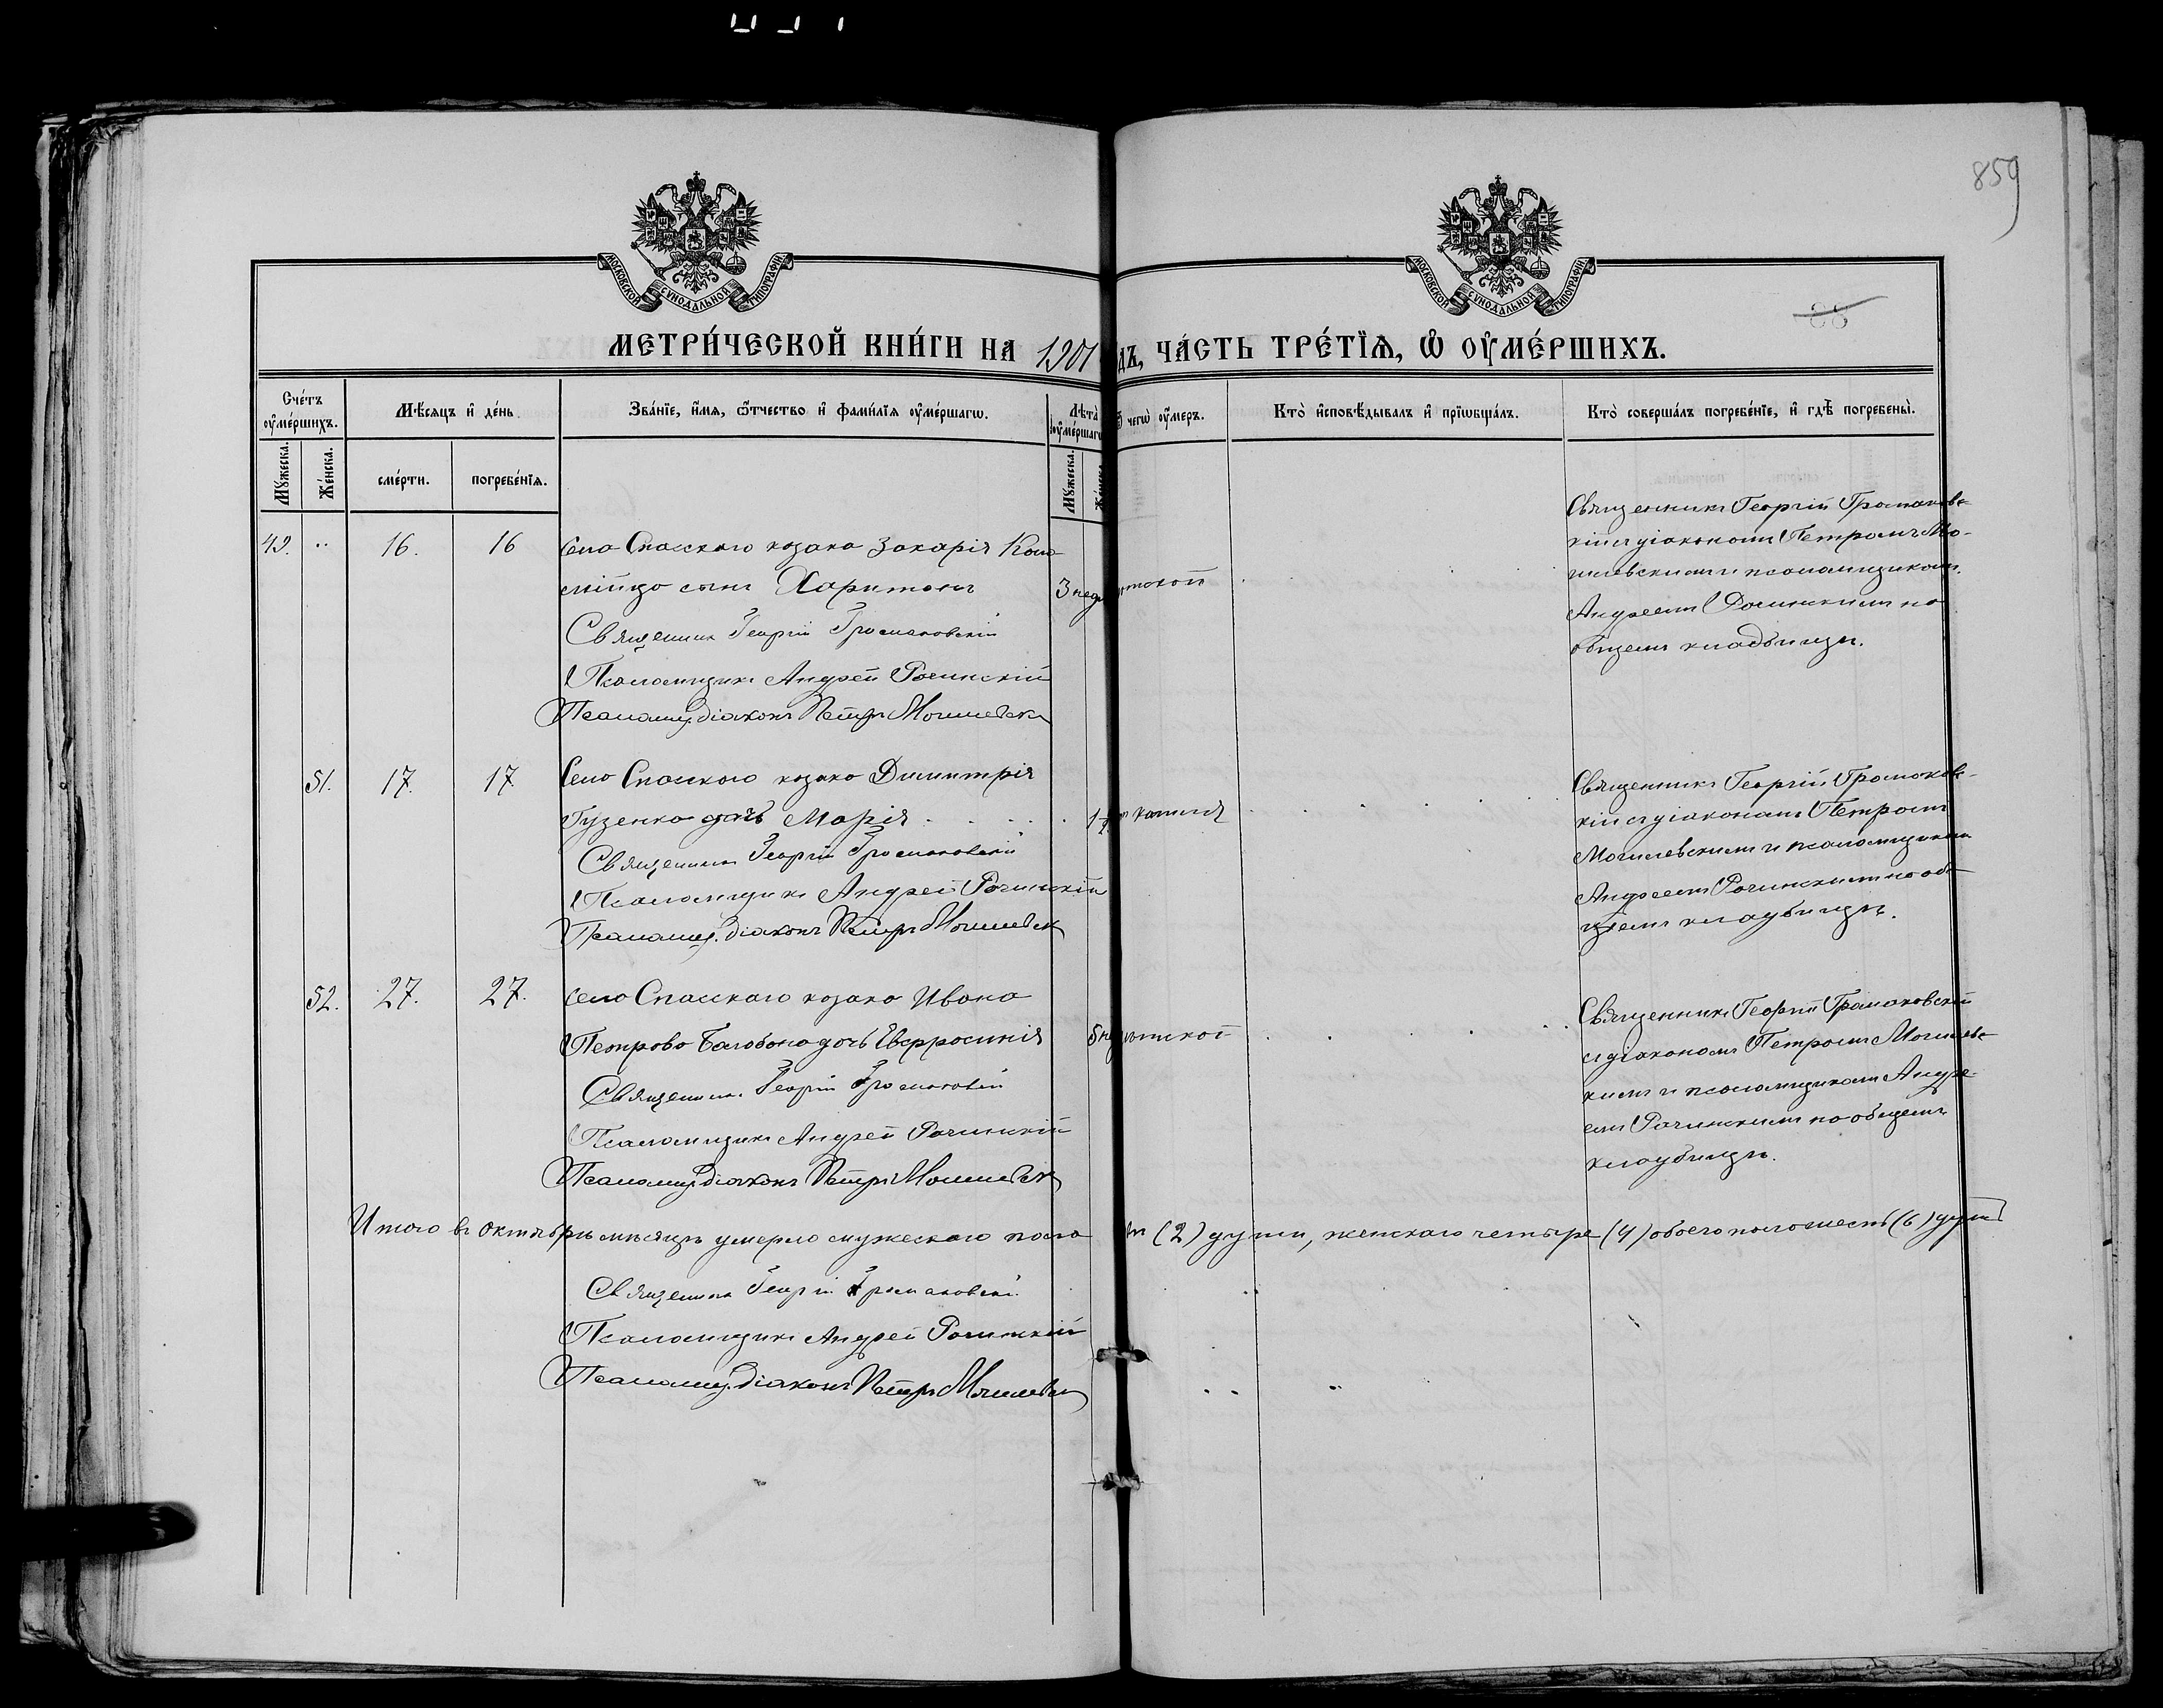 859
МОСКОВСКОЙ СУНОДАЛЬНОЙ ТИПОГРАФІИ
МОСКОВСКОЙ СУНОДАЛЬНОЙ ТИПОГРАФІИ
88
МЕТРИ́ЧЕСКОЙ КНИ́ГИ НА 1901 ДЪ, ЧА́СТЬ ТРЕ́ТЇѦ, Ѡ ОУ҆МЕ́РШИХЪ.
Сче́тъ оу҆ме́ршихъ.
Мѣ́сяцъ и҆ де́нь.
Зва́нїе, и҆́мя, ѻ҆́тчество и҆ фами́лїя оу҆ме́ршагѡ.
Лѣта̀ оу҆ме́ршагѡ
чегѡ̀ оу҆́меръ.
Кто̀ и҆сповѣ́дывалъ и҆ прїѡбща́лъ.
Кто̀ соверша́лъ погребе́нїе, и҆ гдѣ̀ погребены̀.
Му́жеска.
Же́нска.
сме́рти.
погребе́нїя.
Му́жеска.
Же́нска
49. 16. 16 Села Спасскаго козака Захарія
сынъ Харитонъ 3 нед
Священникъ Георгій Громаковскій
Псаломщикъ Андрей Рочинскій
Псаломщ. діаконъ Петръ Могилевск
Священникъ Георгій Громаковс-
кій съ діакономъ Петромъ Мо-
гилевскимъ и псаломщикомъ
Андреемъ Рочинскимъ на
общемъ кладбищѣ.
51. 17. 17 Села Спасскаго козака Димитрія
Гузенко дочь Марія 1 г. кашля
Священникъ Георгій Громаковскій
Псаломщикъ Андрей Рочинскій
Псаломщ. діаконъ Петръ Могилевск
Священникъ Георгій Громаковс-
кій съ діакономъ Петромъ
Могилевскимъ и псаломщикомъ
Андреемъ Рочинскимъ на об-
щемъ кладбищѣ.
52. 27. 27. Села Спасскаго козака Ивана
Петрова Балобана дочь Евфросинія
Священникъ Георгій Громаковскій
Псаломщикъ Андрей Рочинскій
Псаломщ. діаконъ Петръ Могилевск
Священникъ Георгій Громаковскій
съ діакономъ Петромъ Могилевс-
кимъ и псаломщикомъ Андре-
емъ Рочинскимъ на общемъ
кладбищѣ.
Итого въ октябрѣ мѣсяцѣ умерло мужескаго пола (2) души, женскаго четыре (4) обоего пола шесть (6) душъ
Священникъ Георгій Громаковскій
Псаломщикъ Андрей Рочинскій
Псаломщ. діаконъ Петръ Могилевск